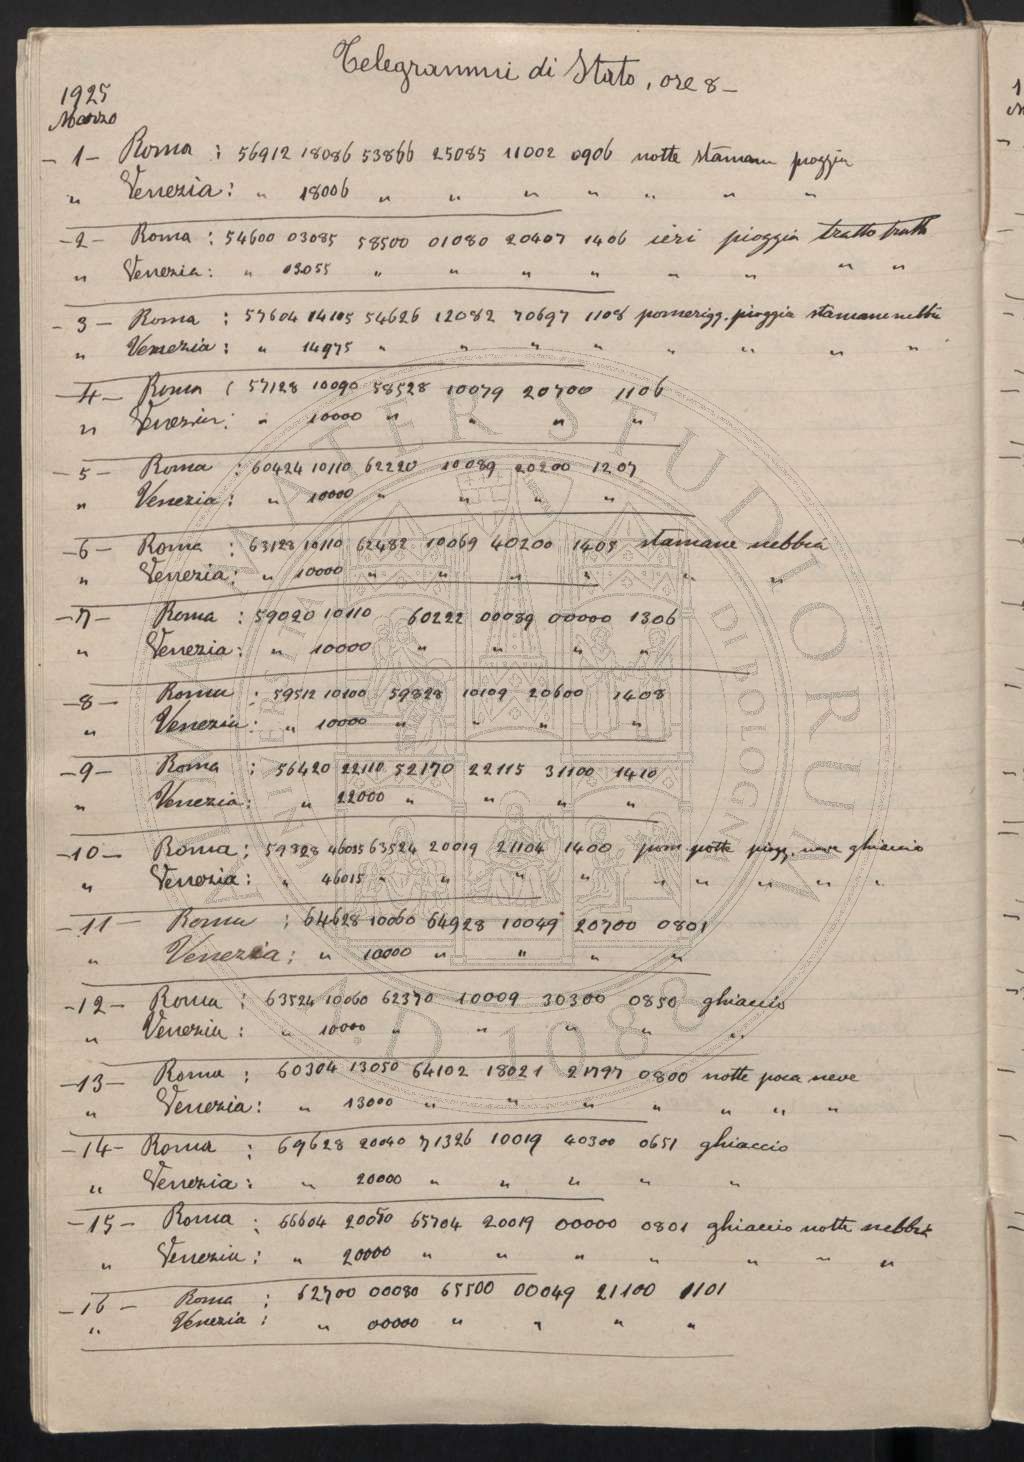 Telegrammi di Stato, ore 8 –
1925
Marzo
– 1 – Roma : 56912 18086 53866 25085 11002 0906 notte stamane pioggia
" Venezia : " 18006 " " " " " " "
– 2 – Roma : 54600 03085 58500 01080 20407 1406 ieri pioggia tratto tratto
" Venezia : " 03055 " " " " " " " "
– 3 – Roma : 57604 14105 54626 12082 70697 1108 pomerigg. pioggia stamane nebbia
" Venezia : " 14975 " " " " " " " "
– 4 – Roma : 57128 10090 58528 10079 20700 1106
" Venezia : " 10000 " " " "
– 5 – Roma : 60424 10110 62220 10089 20200 1207
" Venezia : " 10000 " " " "
– 6 – Roma : 63128 10110 62482 10069 40200 1405 stamane nebbia
" Venezia : " 10000 " " " " " "
– 7 – Roma : 59020 10110 60222 00089 00000 1306
" Venezia : " 10000 " " " "
– 8 – Roma : 59512 10100 59828 10109 20600 1408
" Venezia : " 10000 " " " "
– 9 – Roma : 56420 22110 52170 22115 31100 1410
" Venezia : " 22000 " " " "
– 10 – Roma : 59328 46035 63524 20019 21104 1400 pom. notte piogg. neve ghiaccio
" Venezia : " 46015 " " " " " " " " "
– 11 – Roma : 64628 10060 64928 10049 20700 0801
" Venezia : " 10000 " " " "
– 12 – Roma : 63524 10060 62370 10009 30300 0850 ghiaccio
" Venezia : " 10000 " " " " "
– 13 – Roma : 60304 13050 64102 18021 21797 0800 notte poca neve
" Venezia : " 13000 " " " " " " "
– 14 – Roma : 69628 20040 71326 10019 40300 0651 ghiaccio
" Venezia : " 20000 " " " " "
– 15 – Roma : 66604 20050 65704 20019 00000 0801 ghiaccio notte nebbia
" Venezia : " 20000 " " " " " " "
– 16 – Roma : 62700 00080 65500 00049 21100 1101
" Venezia : " 00000 " " " "
ALMA MATER STUDIORUM
A.D. 1088